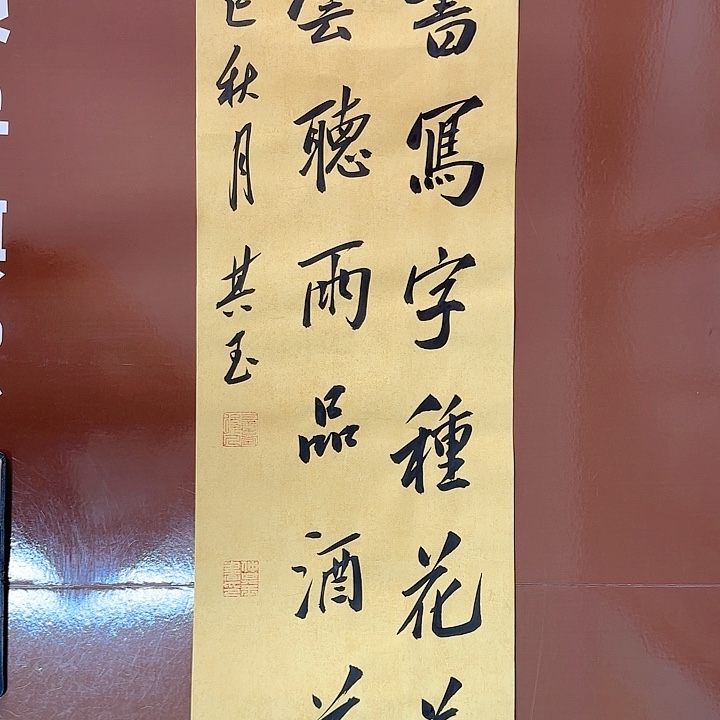 書寫字種花
雲聽雨品酒
秋月其玉